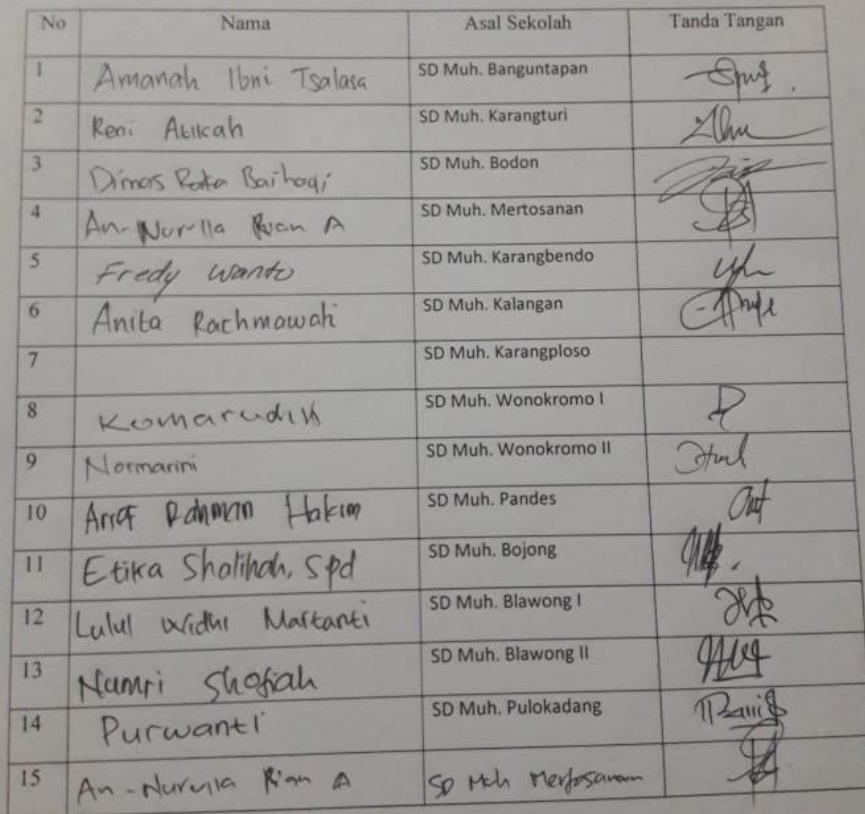 No Nama Asal Sekolah Tanda Tangan
1 Amanah Ibni Tsalasa SD Muh. Banguntapan
2 Reni Atikah SD Muh. Karangturi
3 Dimas Baihaqi SD Muh. Bodon
4 An-Nurulla Rian A SD Muh. Mertosanan
5 Fredy Wanto SD Muh. Karangbendo
6 Anita Rachmawati SD Muh. Kalangan
7 SD Muh. Karangploso
8 Komarudin SD Muh. Wonokromo I
9 Normarini SD Muh. Wonokromo II
10 Arief Rahman Hakim SD Muh. Pandes
11 Etika Shalihah, Spd SD Muh. Bojong
12 Lulul Widhi Martanti SD Muh. Blawong I
13 Namri Shofiah SD Muh. Blawong II
14 Purwanti SD Muh. Pulokadang
15 An-Nurulla Rian A SD Muh Mertosanan